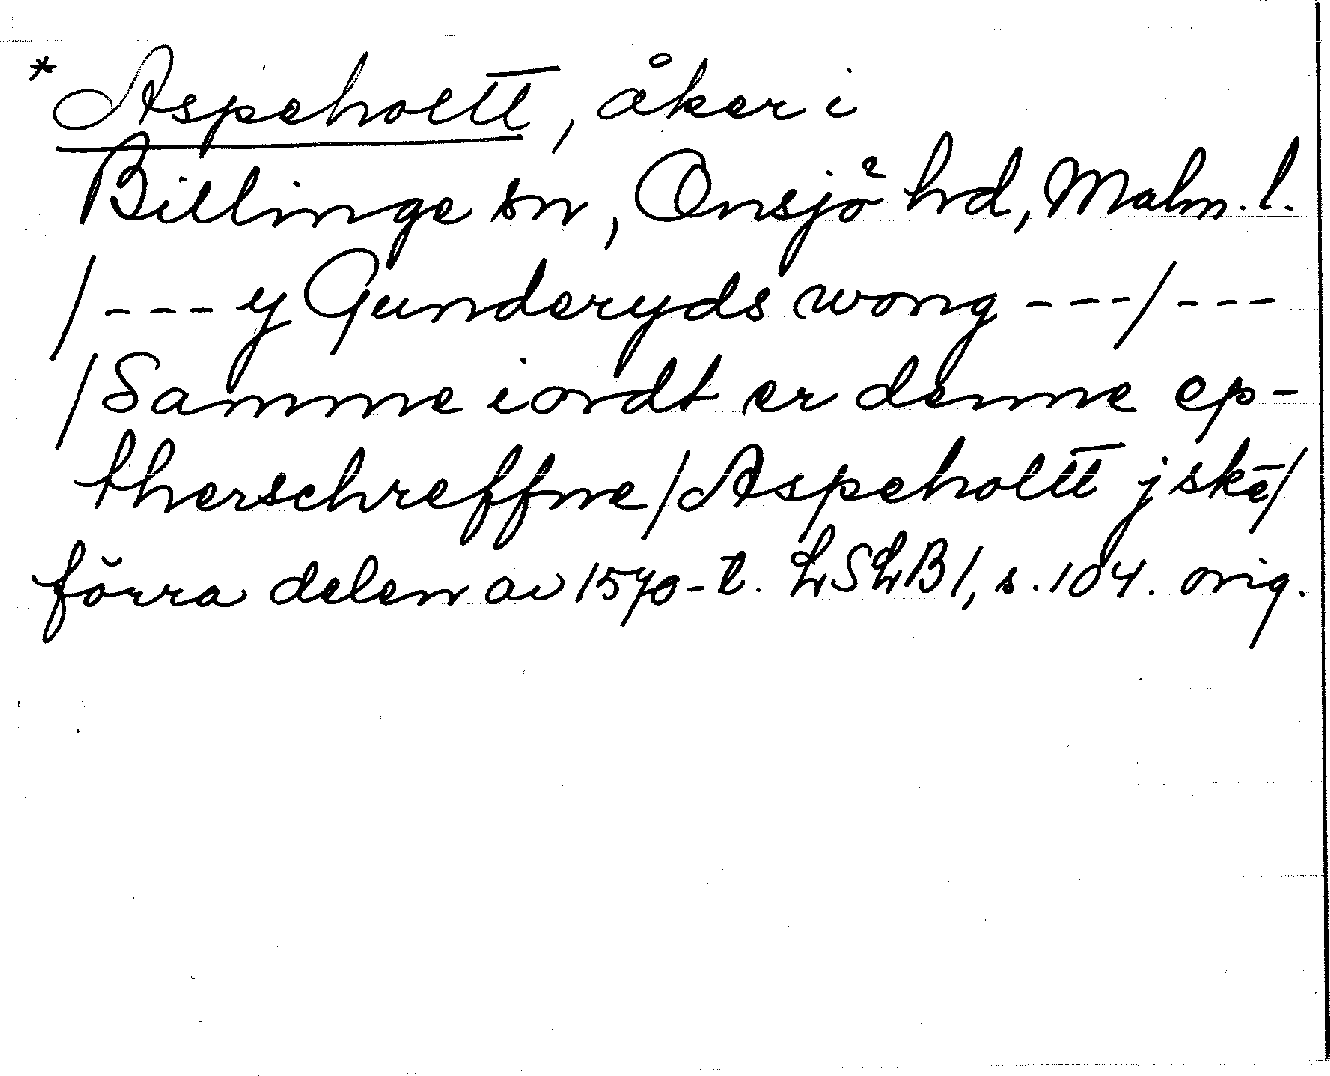 * Aspeholtt, åker i
Billinge sn, Onsjö hd, Malm. l.
/ - - - y Gunderyds wong - - - / - - -
/ Samme iordt er denne ep-
therschreffne / Aspeholtt j skē /
förra delen av 1570-t. LSLB 1, s. 104. orig.